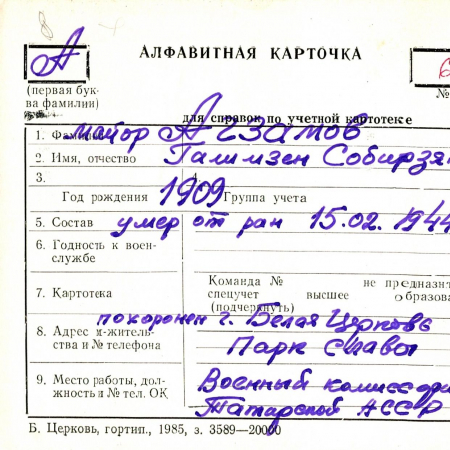 8
А
АЛФАВИТНАЯ КАРТОЧКА
6
(первая бук-
ва фамилии)
№
для справок по учетной картотеке
1. Фамилия майор Агзамов
2. Имя, отчество Галимзен Собирзя
3.
4.
Год рождения 1909 Группа учета
5. Состав умер от ран 15.02.1944
6. Годность к воен-
службе
Команда № не предназн
7. Картотека спецучет высшее образова
(подчеркнуть)
похоронен г. Белая Церковь
8. Адрес м-житель-
ства и № телефона Парк Славы
9. Место работы, дол-
жность и № тел. ОК Военный комиссари
Татарской АССР
Б. Церковь, гортип., 1985, з. 3589—20000